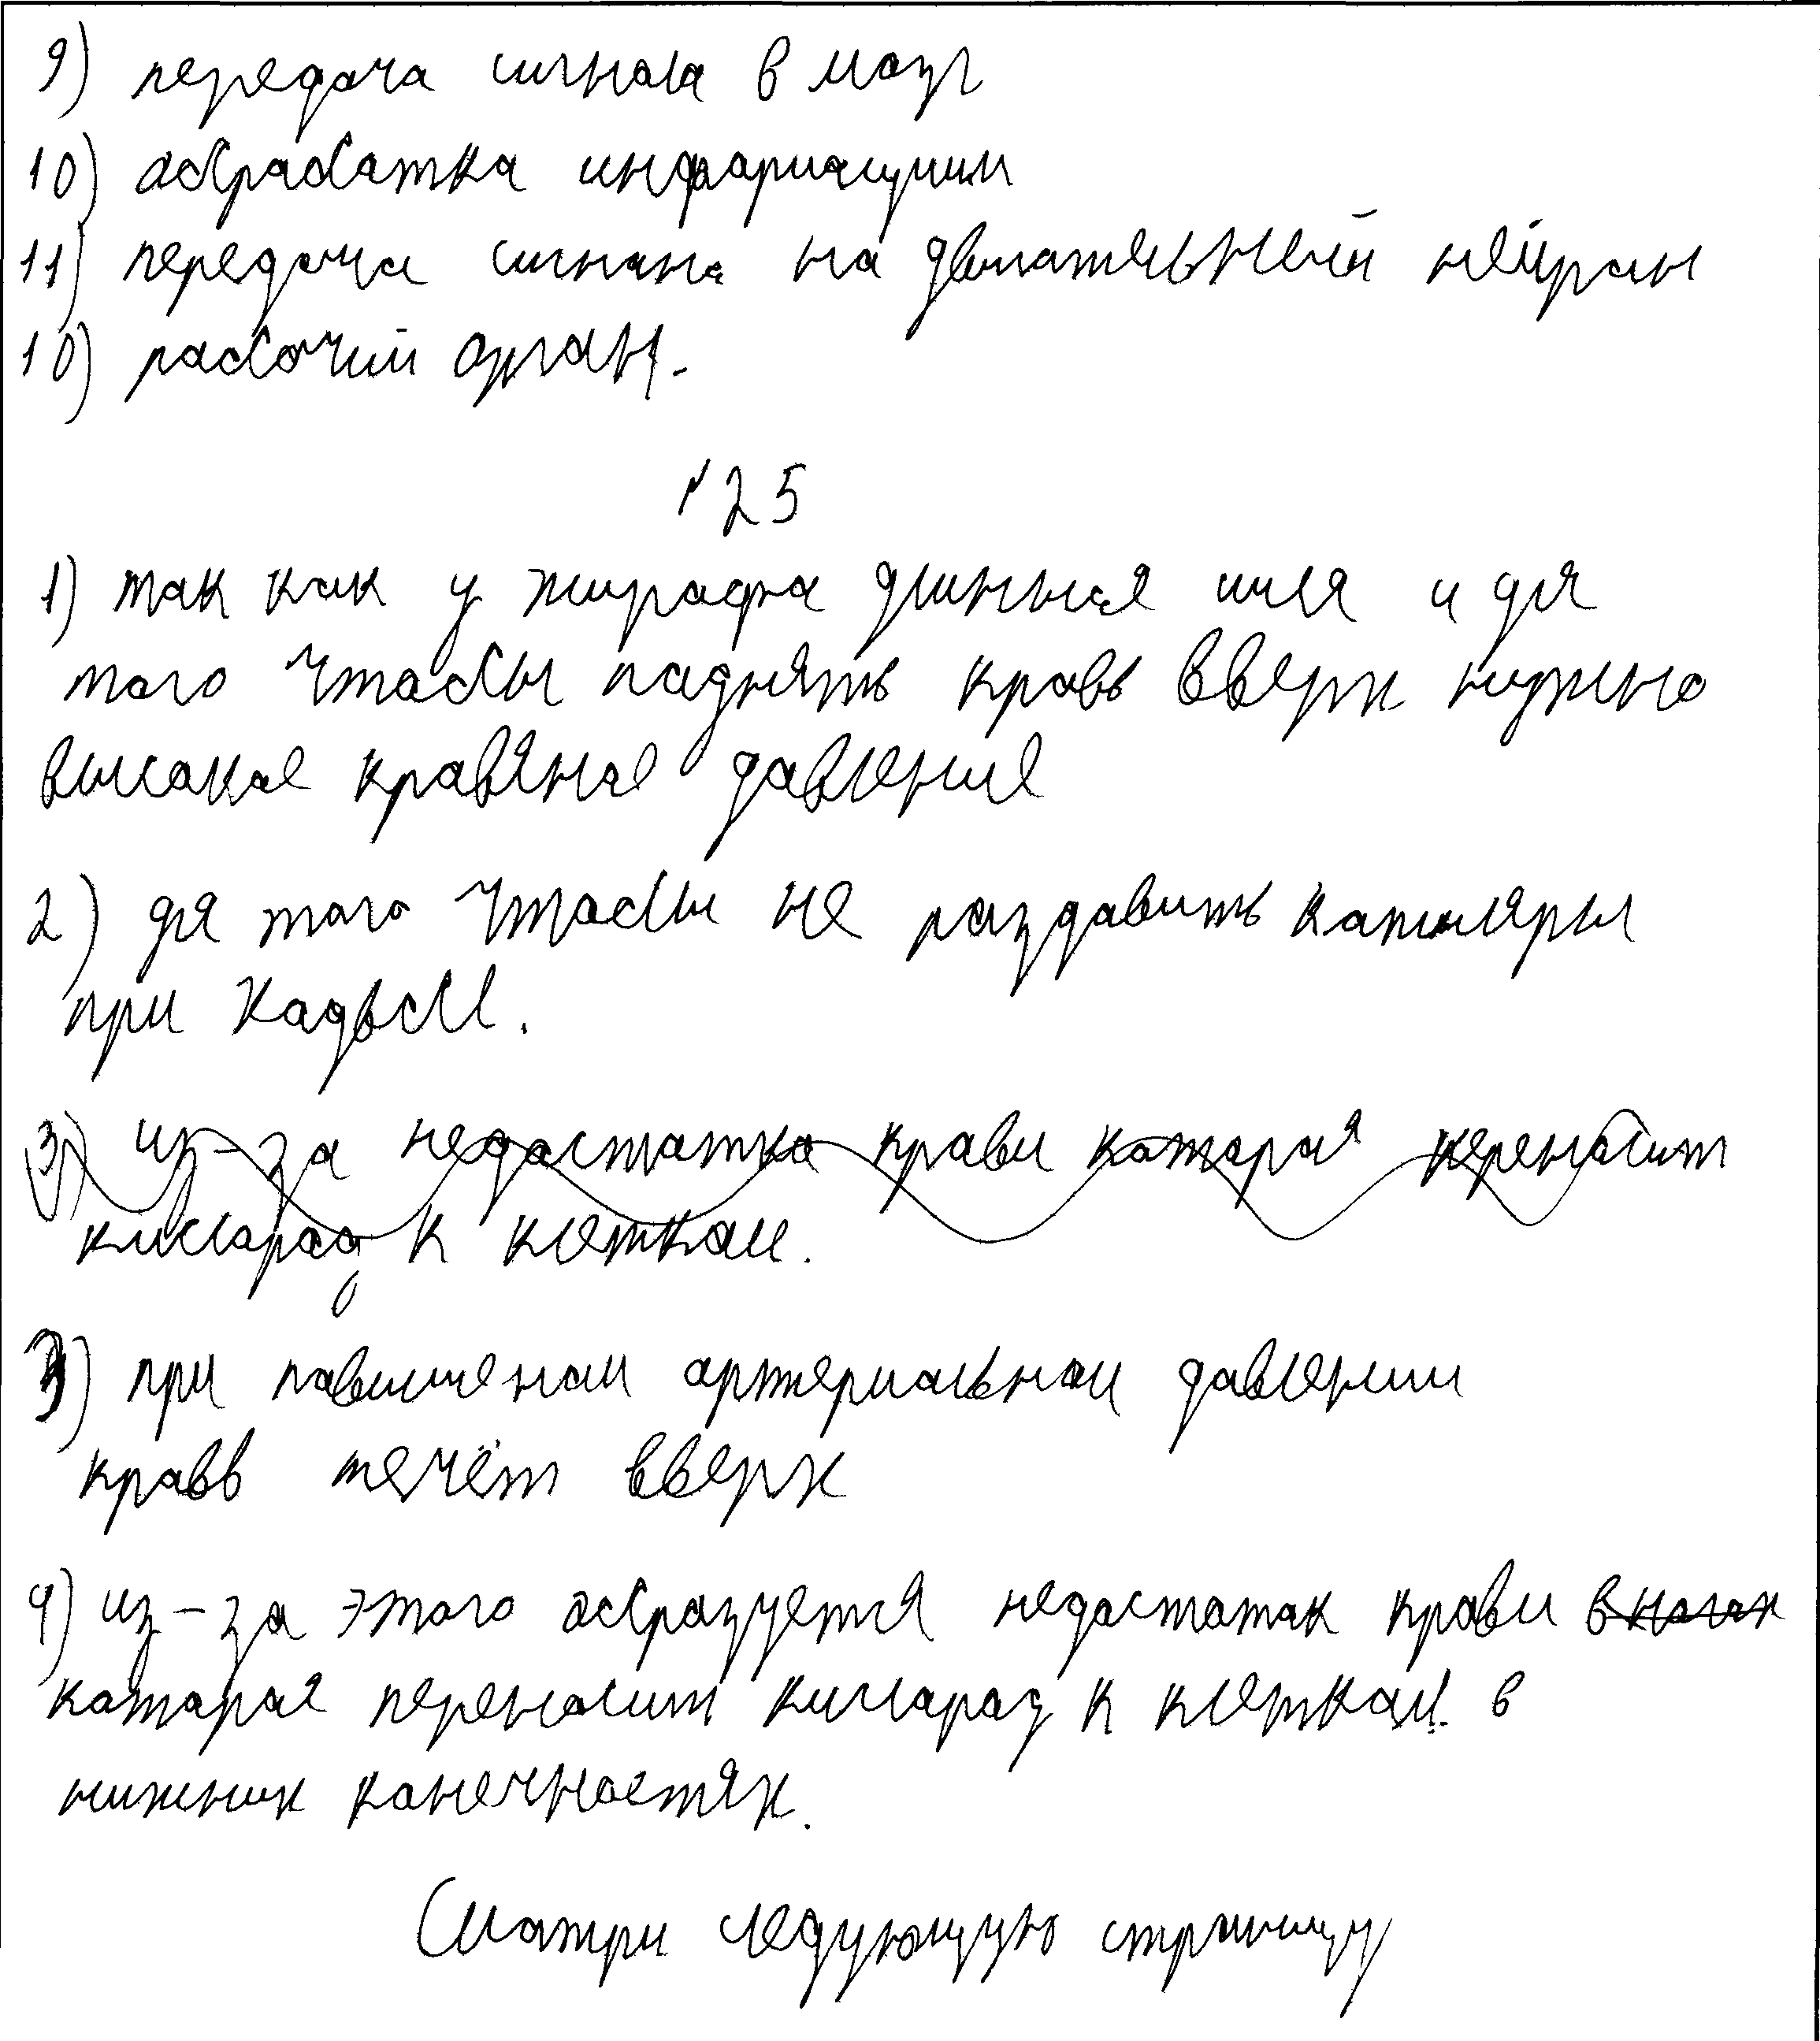 9) передача сигнала в мозг
10) обработка информации
11) передача сигнала на двигательный нейрон
10) рабочий орган.
№25
1) так как у жирафа длинная шея и для
того чтобы поднять кровь вверх нужно
высокое кровяное давление
2) для того чтобы не раздавить капиляры
при ходьбе.
3) из-за недостатка крови которая переносит
кислород к клеткам.
3) при повышеном артериальном давлении
кровь течёт вверх
4) из-за этого образуется недостаток крови в ногах
которая переносит кислород к клеткам в
нижних конечностях.
Смотри следующую страницу